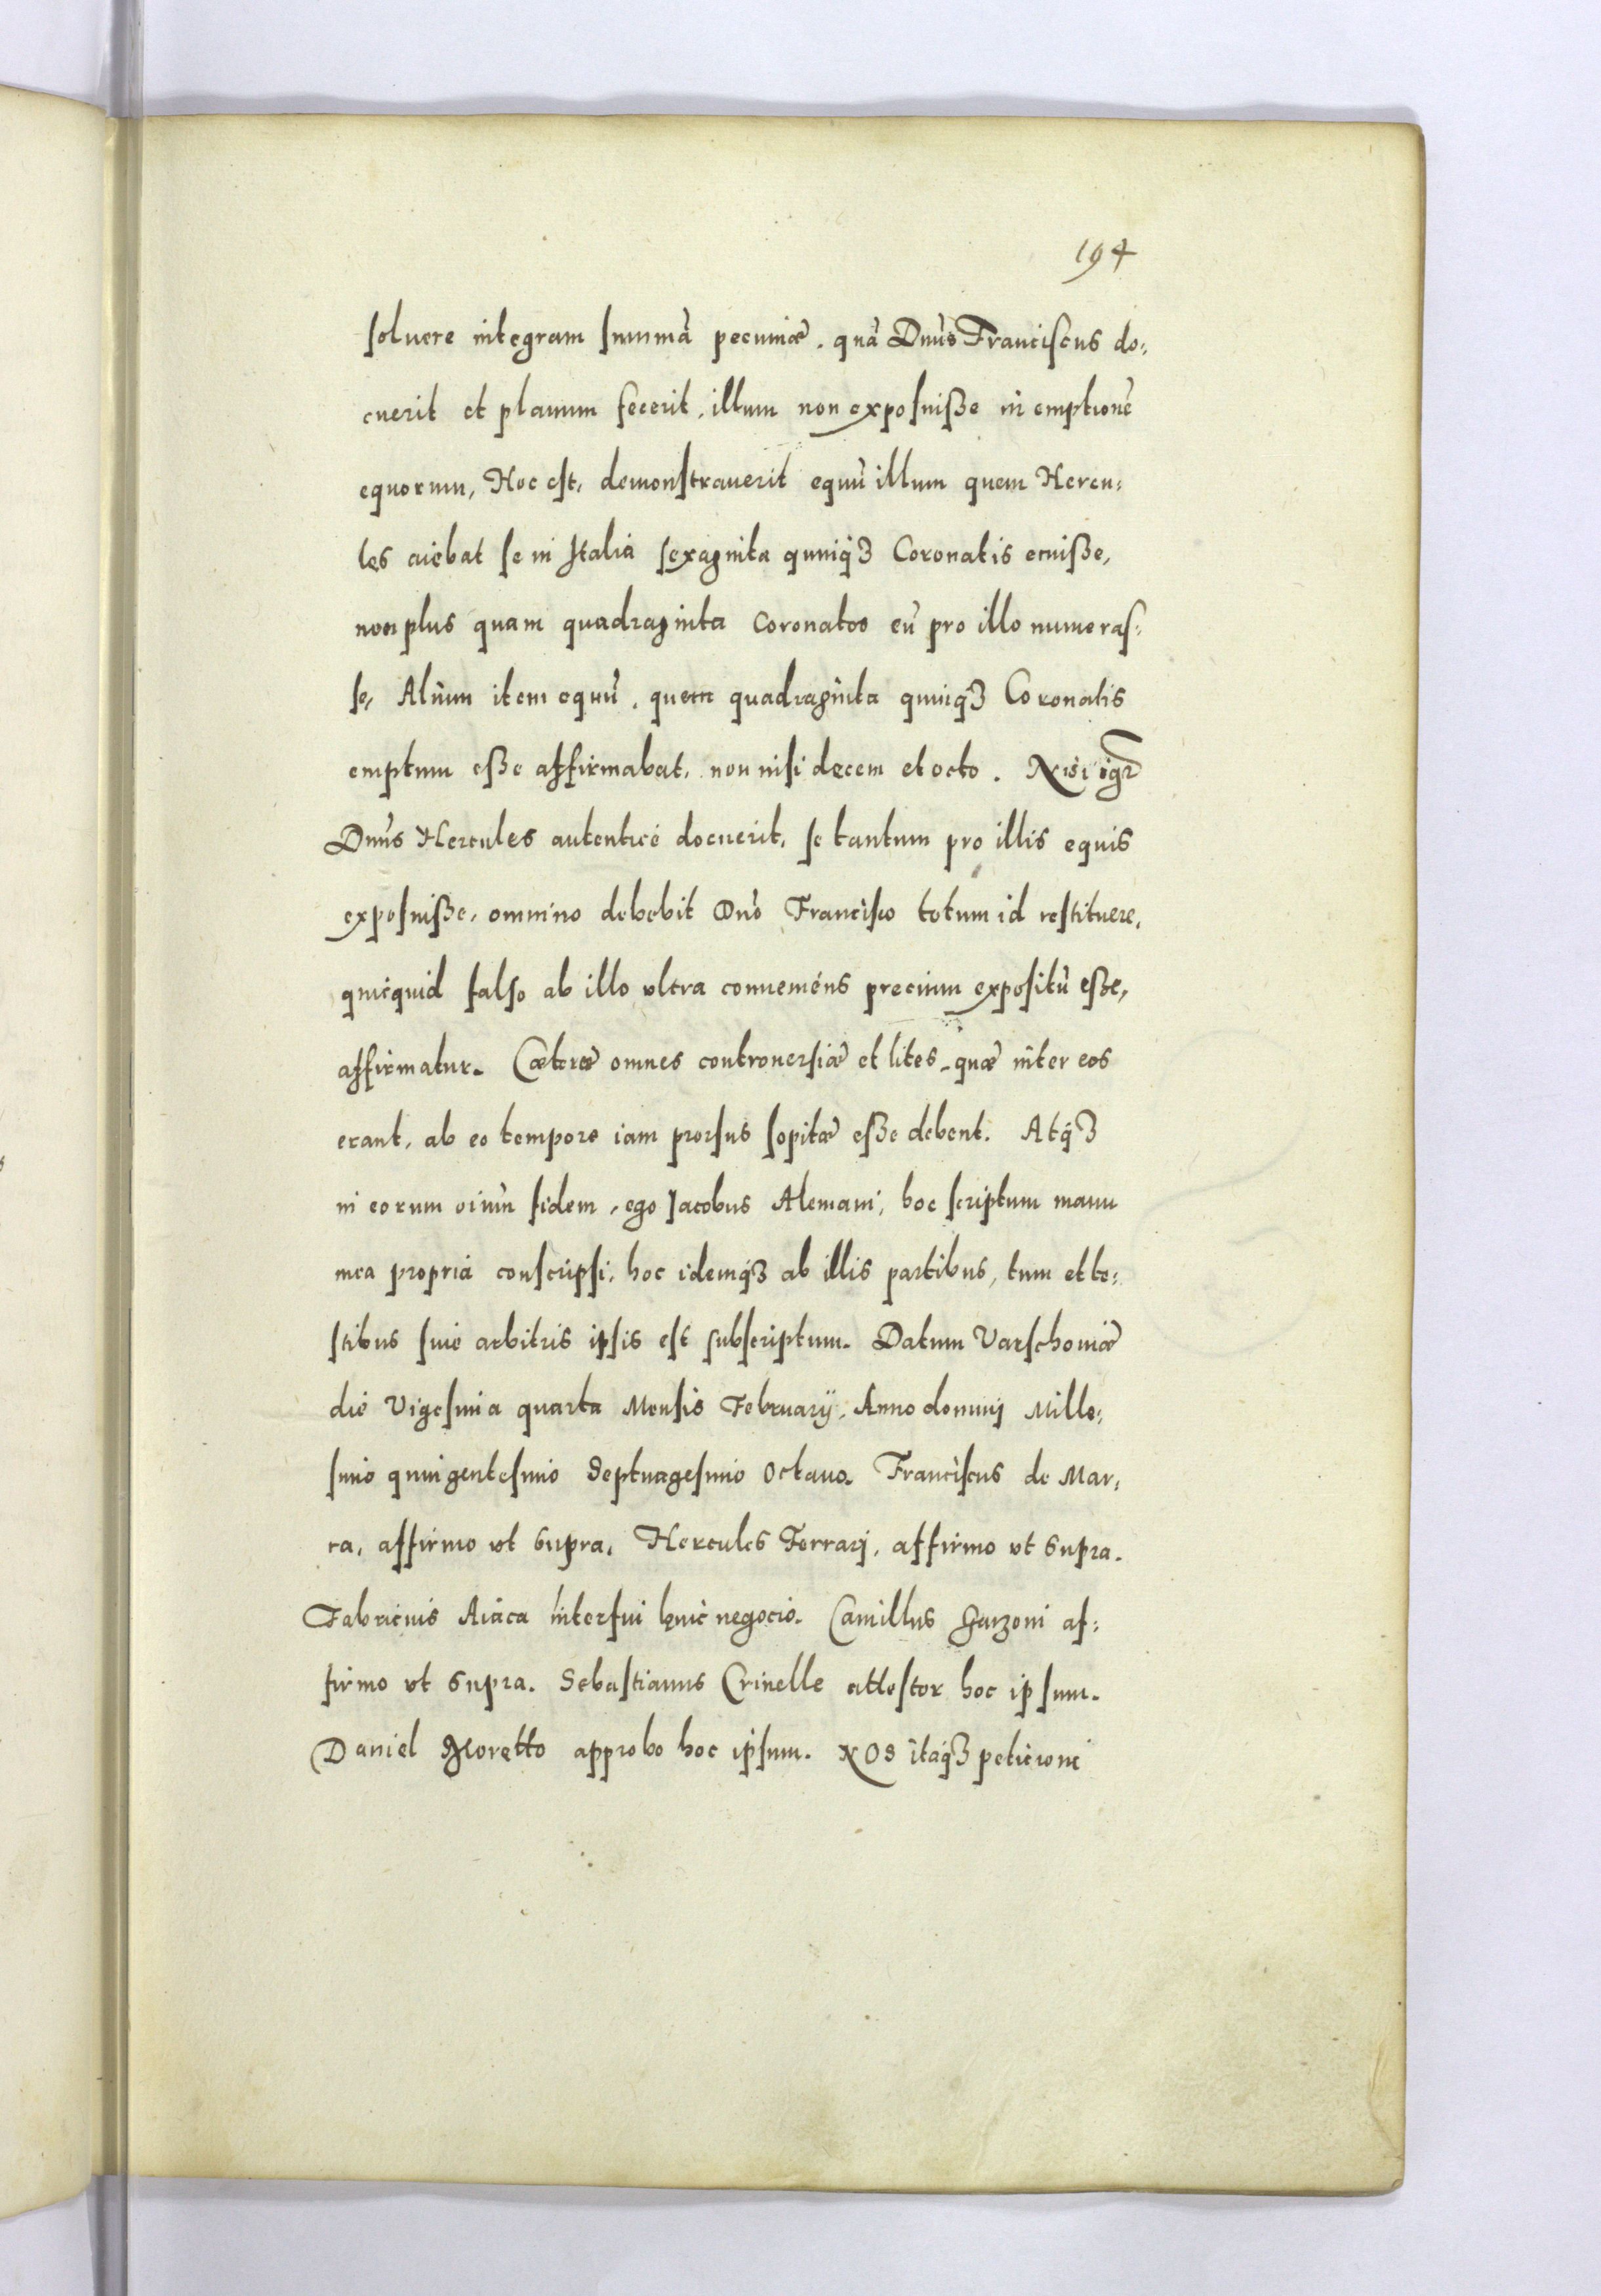 194
soluere integram summā pecuniæ, quā Dnūs Franciscus do:
cuerit et planum fecerit, illum non exposuisse in emptionē
equorum, Hoc est, demonstrauerit equū illum quem Hercu:
les aiebat se in Italia sexaginta quinq̃ꝫ Coronatis emisse,
non plus quam quadraginta Coronatos eū pro illo numeras:
se, Alium item equū, quem quadraginta quinq̃ꝫ Coronatis
emptum esse affirmabat, non nisi decem et octo. Nisi igr̃
Dnūs Hercules autentice docuerit, se tantum pro illis equis
exposuisse, omnino debebit Dnō Francisco totum id restituere,
quicquid falso ab illo vltra conueniens precium expositū esse,
affirmatur. Cæteræ omnes controuersiæ et lites, quæ inter eos
erant, ab eo tempore iam prorsus sopitæ esse debent. Atq̃ꝫ
in eorum oīum fidem, ego Jacobus Alemani, hoc scriptum manu
mea propria conscripsi, hoc idemq̃ꝫ ab illis partibus, tum et te:
stibus siue arbitris ipsis est subscriptum. Datum Varschouiæ
die Vigesima quarta Mensis February, Anno dominj Mille:
simo quingentesimo Septuagesimo Octauo. Franciscus de Mar:
ra, affirmo vt supra, Hercules Ferrarj, affirmo vt supra.
Fabricius Aiaca interfui huic negocio. Camillus Garzoni af:
firmo vt supra. Sebastianus Crinelle attestor hoc ipsum.
Daniel Moretto approbo hoc ipsum. NOS itaq̃ꝫ peticioni